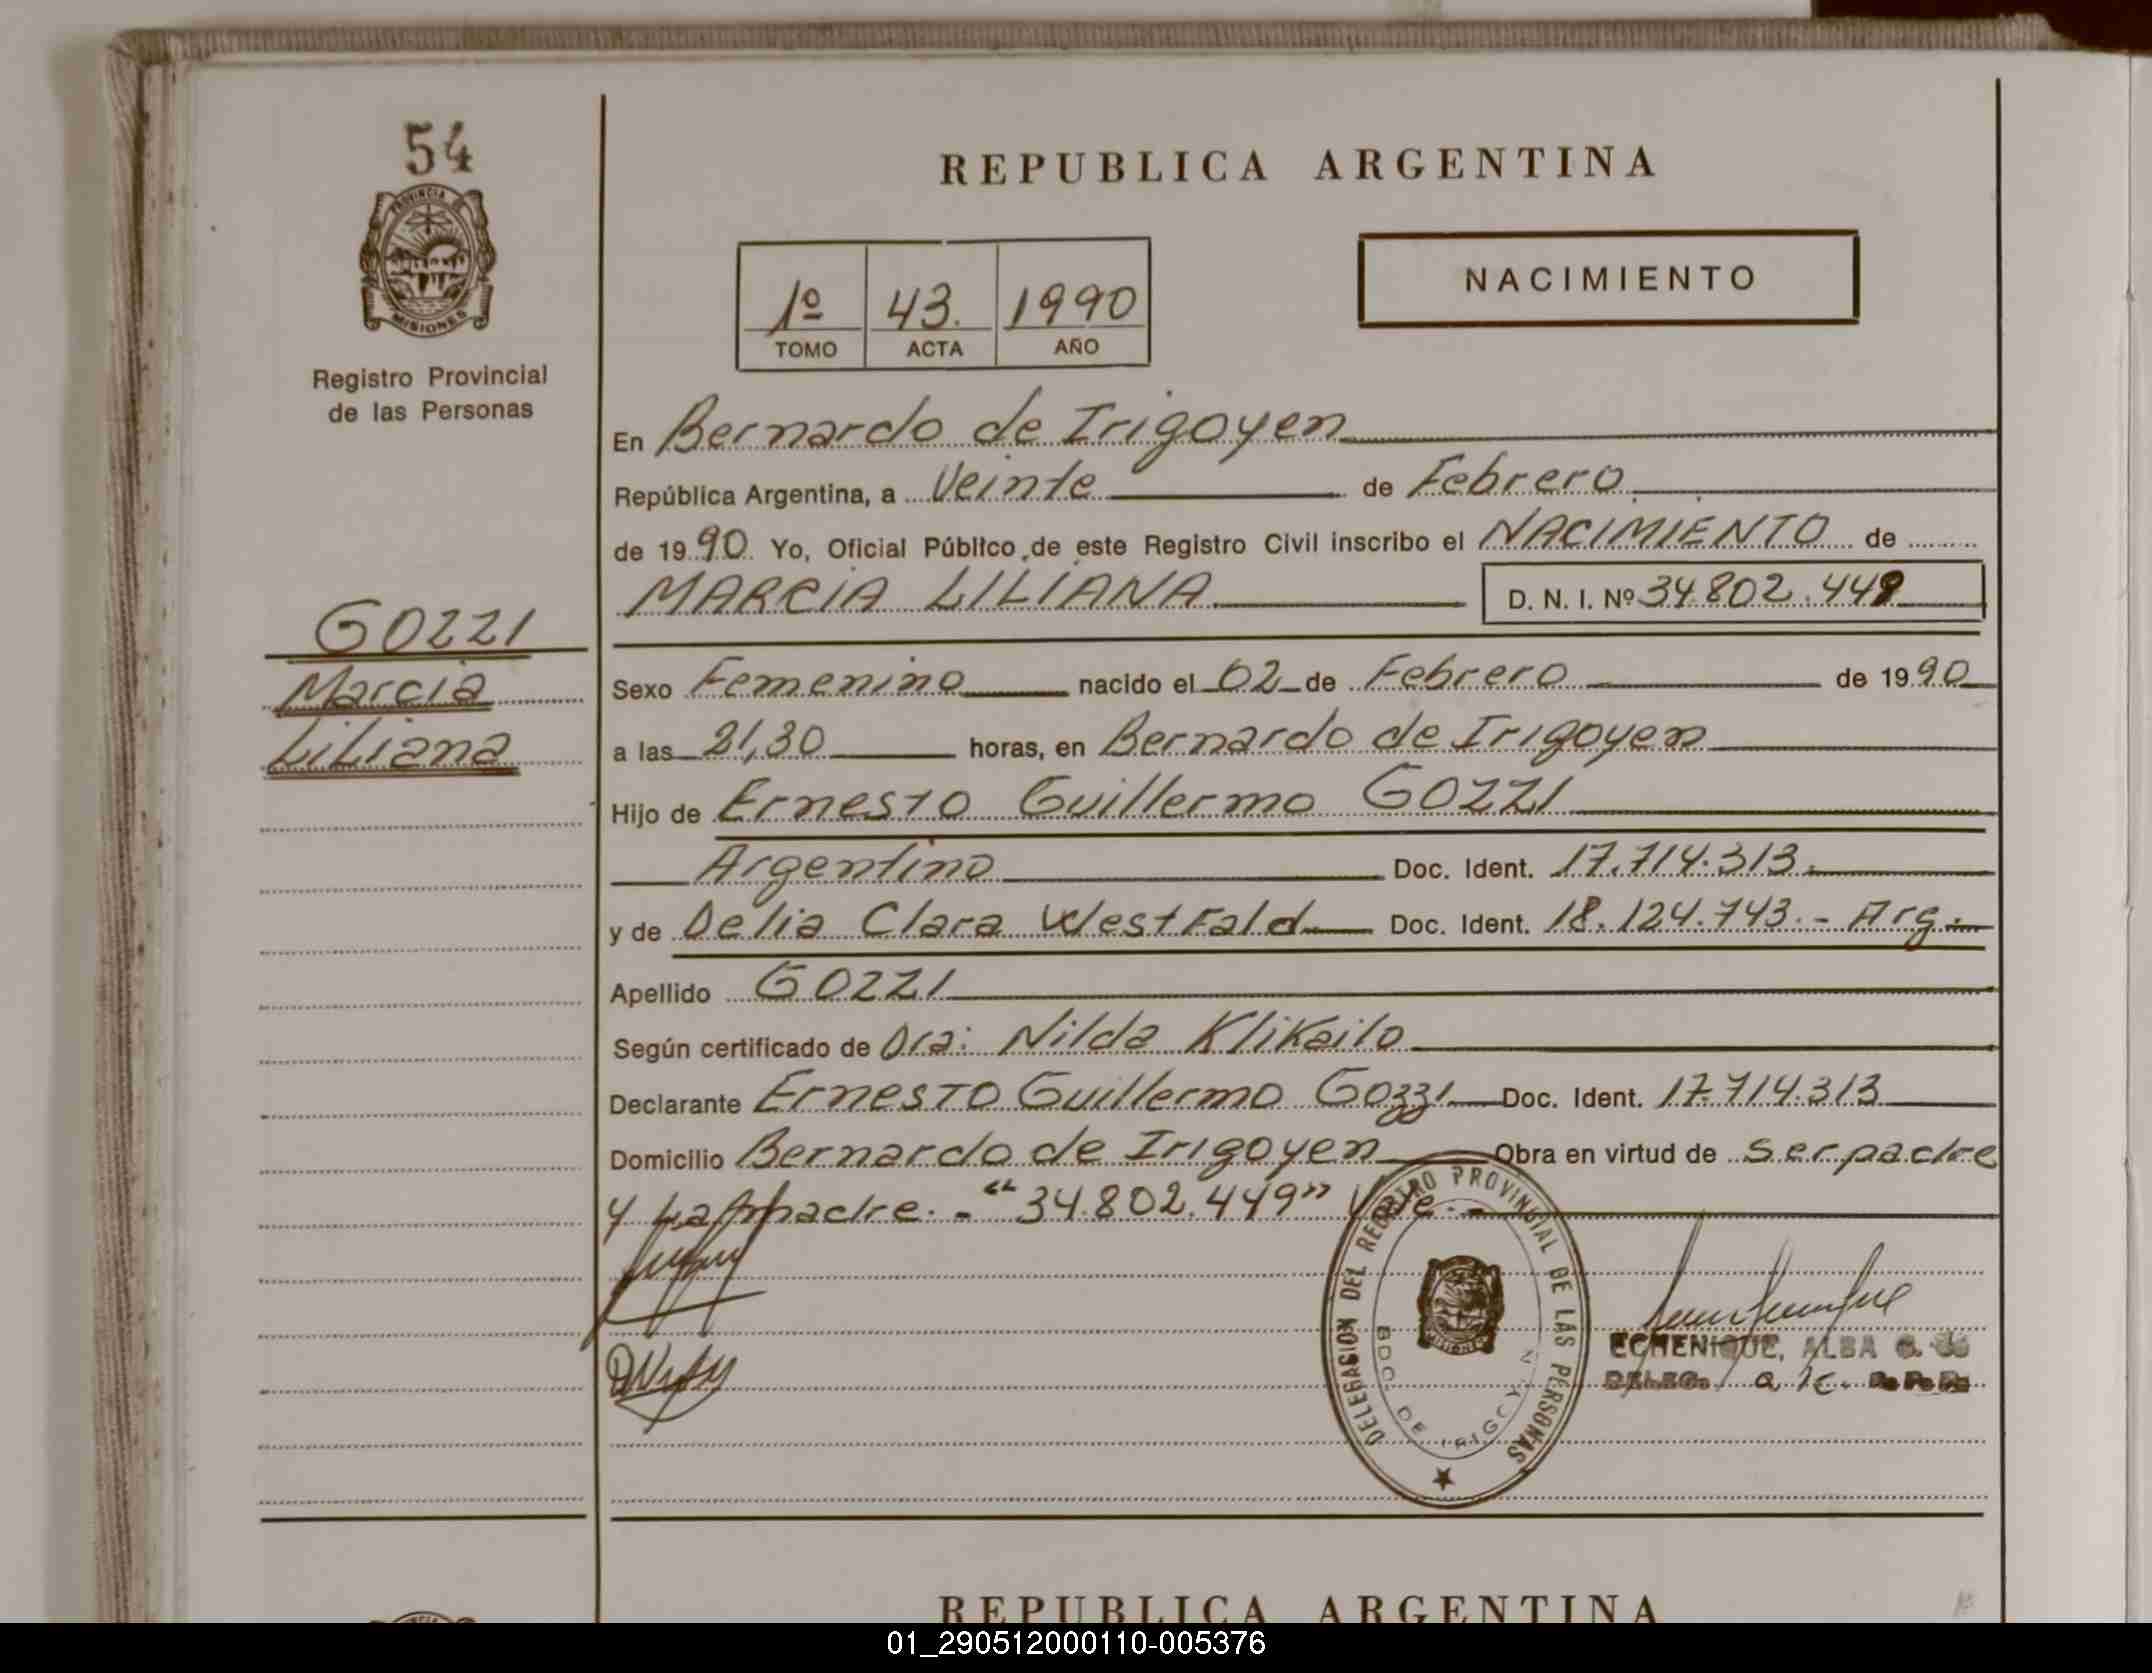 54
PROVINCIA DE
MISIONES
Registro Provincial
de las Personas
GOZZI
Marcia
Liliana
REPUBLICA ARGENTINA
1º 43. 1990
TOMO ACTA AÑO
NACIMIENTO
En Bernardo de Irigoyen
República Argentina, a Veinte de Febrero
de 1990 Yo, Oficial Público de este Registro Civil inscribo el NACIMIENTO de
MARCIA LILIANA D. N. I. Nº 34.802.449
Sexo Femenino nacido el 02 de Febrero de 1990
a las 21,30 horas, en Bernardo de Irigoyen
Hijo de Ernesto Guillermo GOZZI
Argentino Doc. Ident. 17.714.313.
y de Delia Clara Westfald Doc. Ident. 18.124.743.- Arg.-
Apellido GOZZI
Según certificado de Dra: Nilda Klikailo
Declarante Ernesto Guillermo Gozzi Doc. Ident. 17.714.313
Domicilio Bernardo de Irigoyen Obra en virtud de ser padre
y La madre.- "34.802.449" Vale.-
DELEGACION DEL REGISTRO PROVINCIAL DE LAS PERSONAS
BDO. DE IRIGOYEN
MISIONES
ECHENIQUE, ALBA G.
DELEG. a/c. R.P.P.
REPUBLICA ARGENTINA
01_290512000110-005376